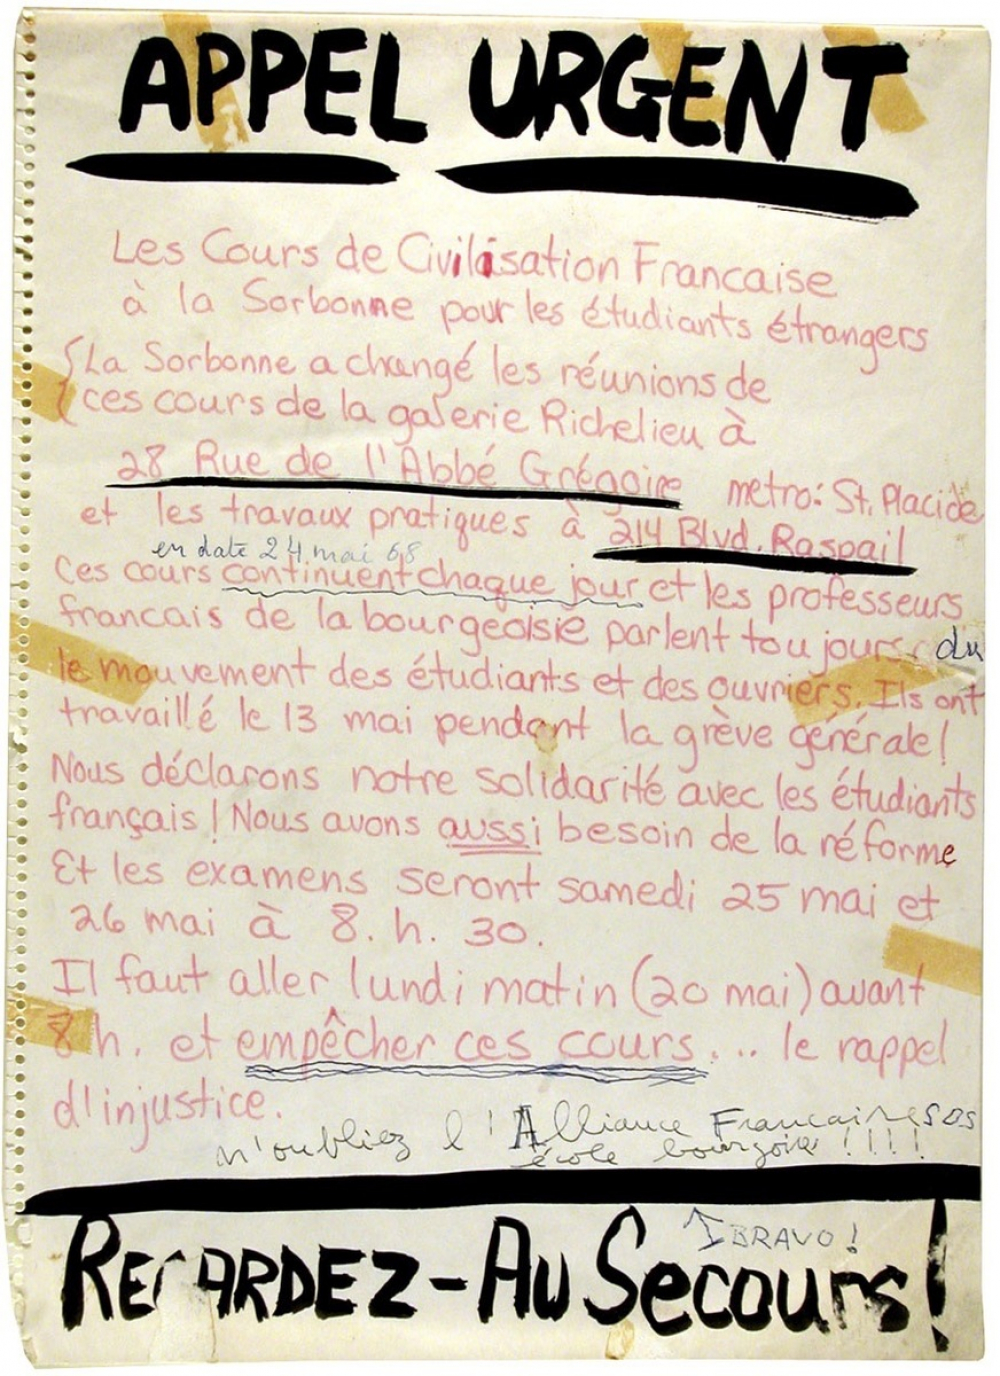 APPEL URGENT
Les Cours de Civilisation Francaise
à la Sorbonne pour les étudiants étrangers
La Sorbonne a changé les réunions de
ces cours de la galerie Richelieu à
28 Rue de l'Abbé Grégoire metro: St. Placide
et les travaux pratiques à 214 Blvd. Raspail
en date 24 mai 68
Ces cours continuent chaque jour et les professeurs
francais de la bourgeoisie parlent toujours du
le mouvement des étudiants et des ouvriers. Ils ont
travaillé le 13 mai pendant la grève générale!
Nous déclarons notre solidarité avec les étudiants
français! Nous avons aussi besoin de la réforme
Et les examens seront samedi 25 mai et
26 mai à 8. h. 30.
Il faut aller lundi matin (20 mai) avant
8 h. et empêcher ces cours... le rappel
d'injustice.
n'oubliez l'Alliance Francaise SOS
école !!!!
BRAVO!
REGARDEZ-AU Secours!